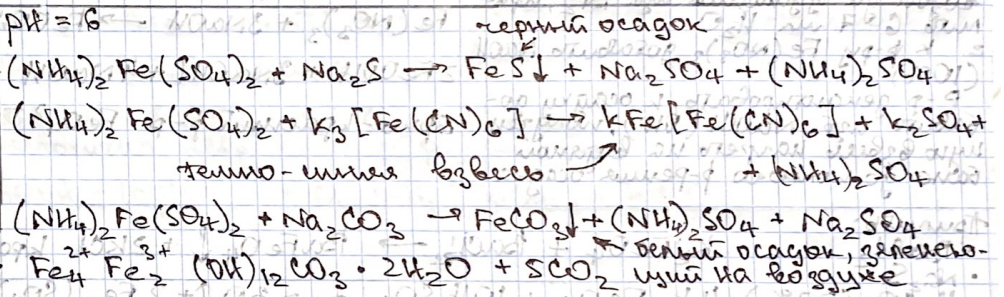 pH = 6
черный осадок
(NH4)2 Fe(SO4)2 + Na2S → FeS↓ + Na2SO4 + (NH4)2SO4
(NH4)2 Fe(SO4)2 + K3[Fe(CN)6] → KFe[Fe(CN)6] + K2SO4 +
темно-синяя взвесь + (NH4)2SO4
(NH4)2 Fe(SO4)2 + Na2CO3 → FeCO3↓ + (NH4)2SO4 + Na2SO4
белый осадок, зеленею-
Fe4^2+ Fe2^3+ (OH)12CO3 · 2H2O + 5CO2 щий на воздухе